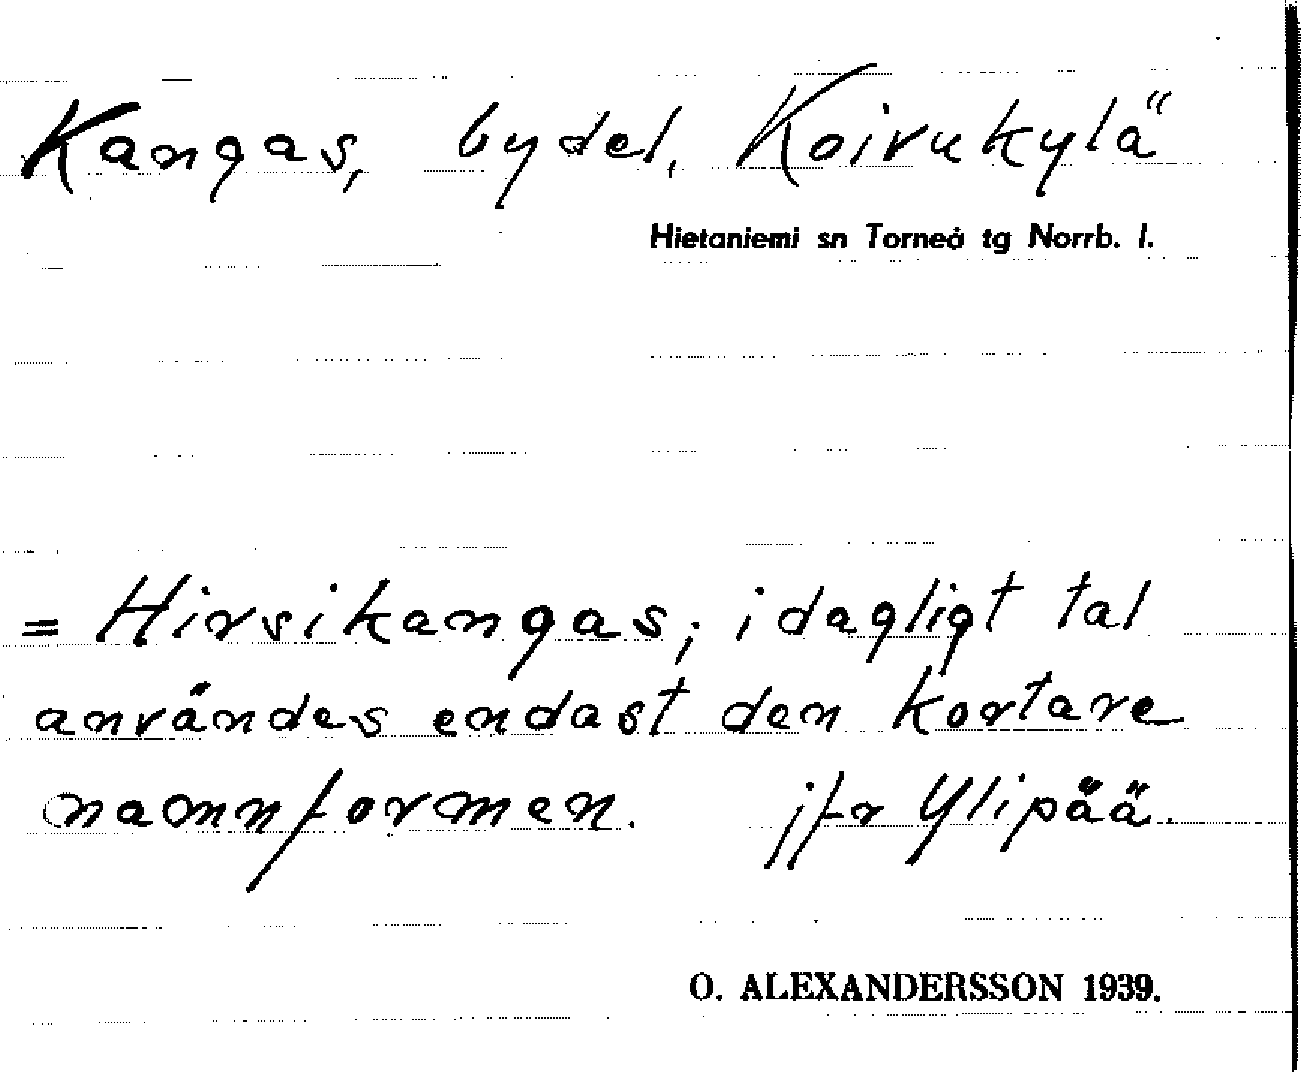 Kangas, bydel, Koivukylä
Hietaniemi sn Torneå tg Norrb. l.
= Hirsikangas; i dagligt tal
användes endast den kortare
namnformen. jfr Ylipää.
O. ALEXANDERSSON 1939.